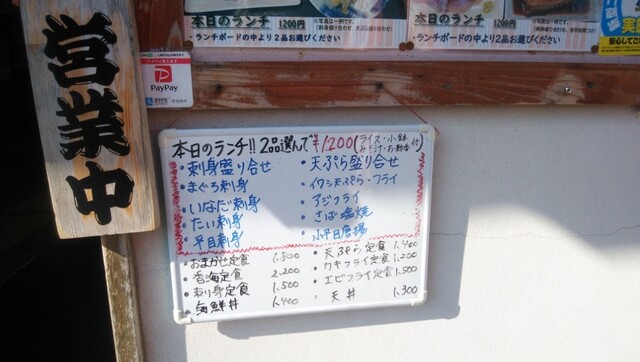 営業中
PayPay
本日のランチ 1200円
・ランチボードの中より2品お選びください
本日のランチ 1200円
・ランチボードの中より2品お選びください
本日のランチ!! 2品選んで ¥1.200(ライス・小鉢
みそ汁・お新香付)
・刺身盛り合せ
・まぐろ刺身
・いなだ刺身
・たい刺身
・平目刺身
・天ぷら盛り合せ
・イワシ天ぷら・フライ
・アジフライ
・さば塩焼
・小平目唐揚
・おまかせ定食 1.800
・香海定食 2.200
・刺し身定食 1.500
・海鮮丼 1.400
・天ぷら定食 1.400
・カキフライ定食 1.200
・エビフライ定食 1.500
・天丼 1.300